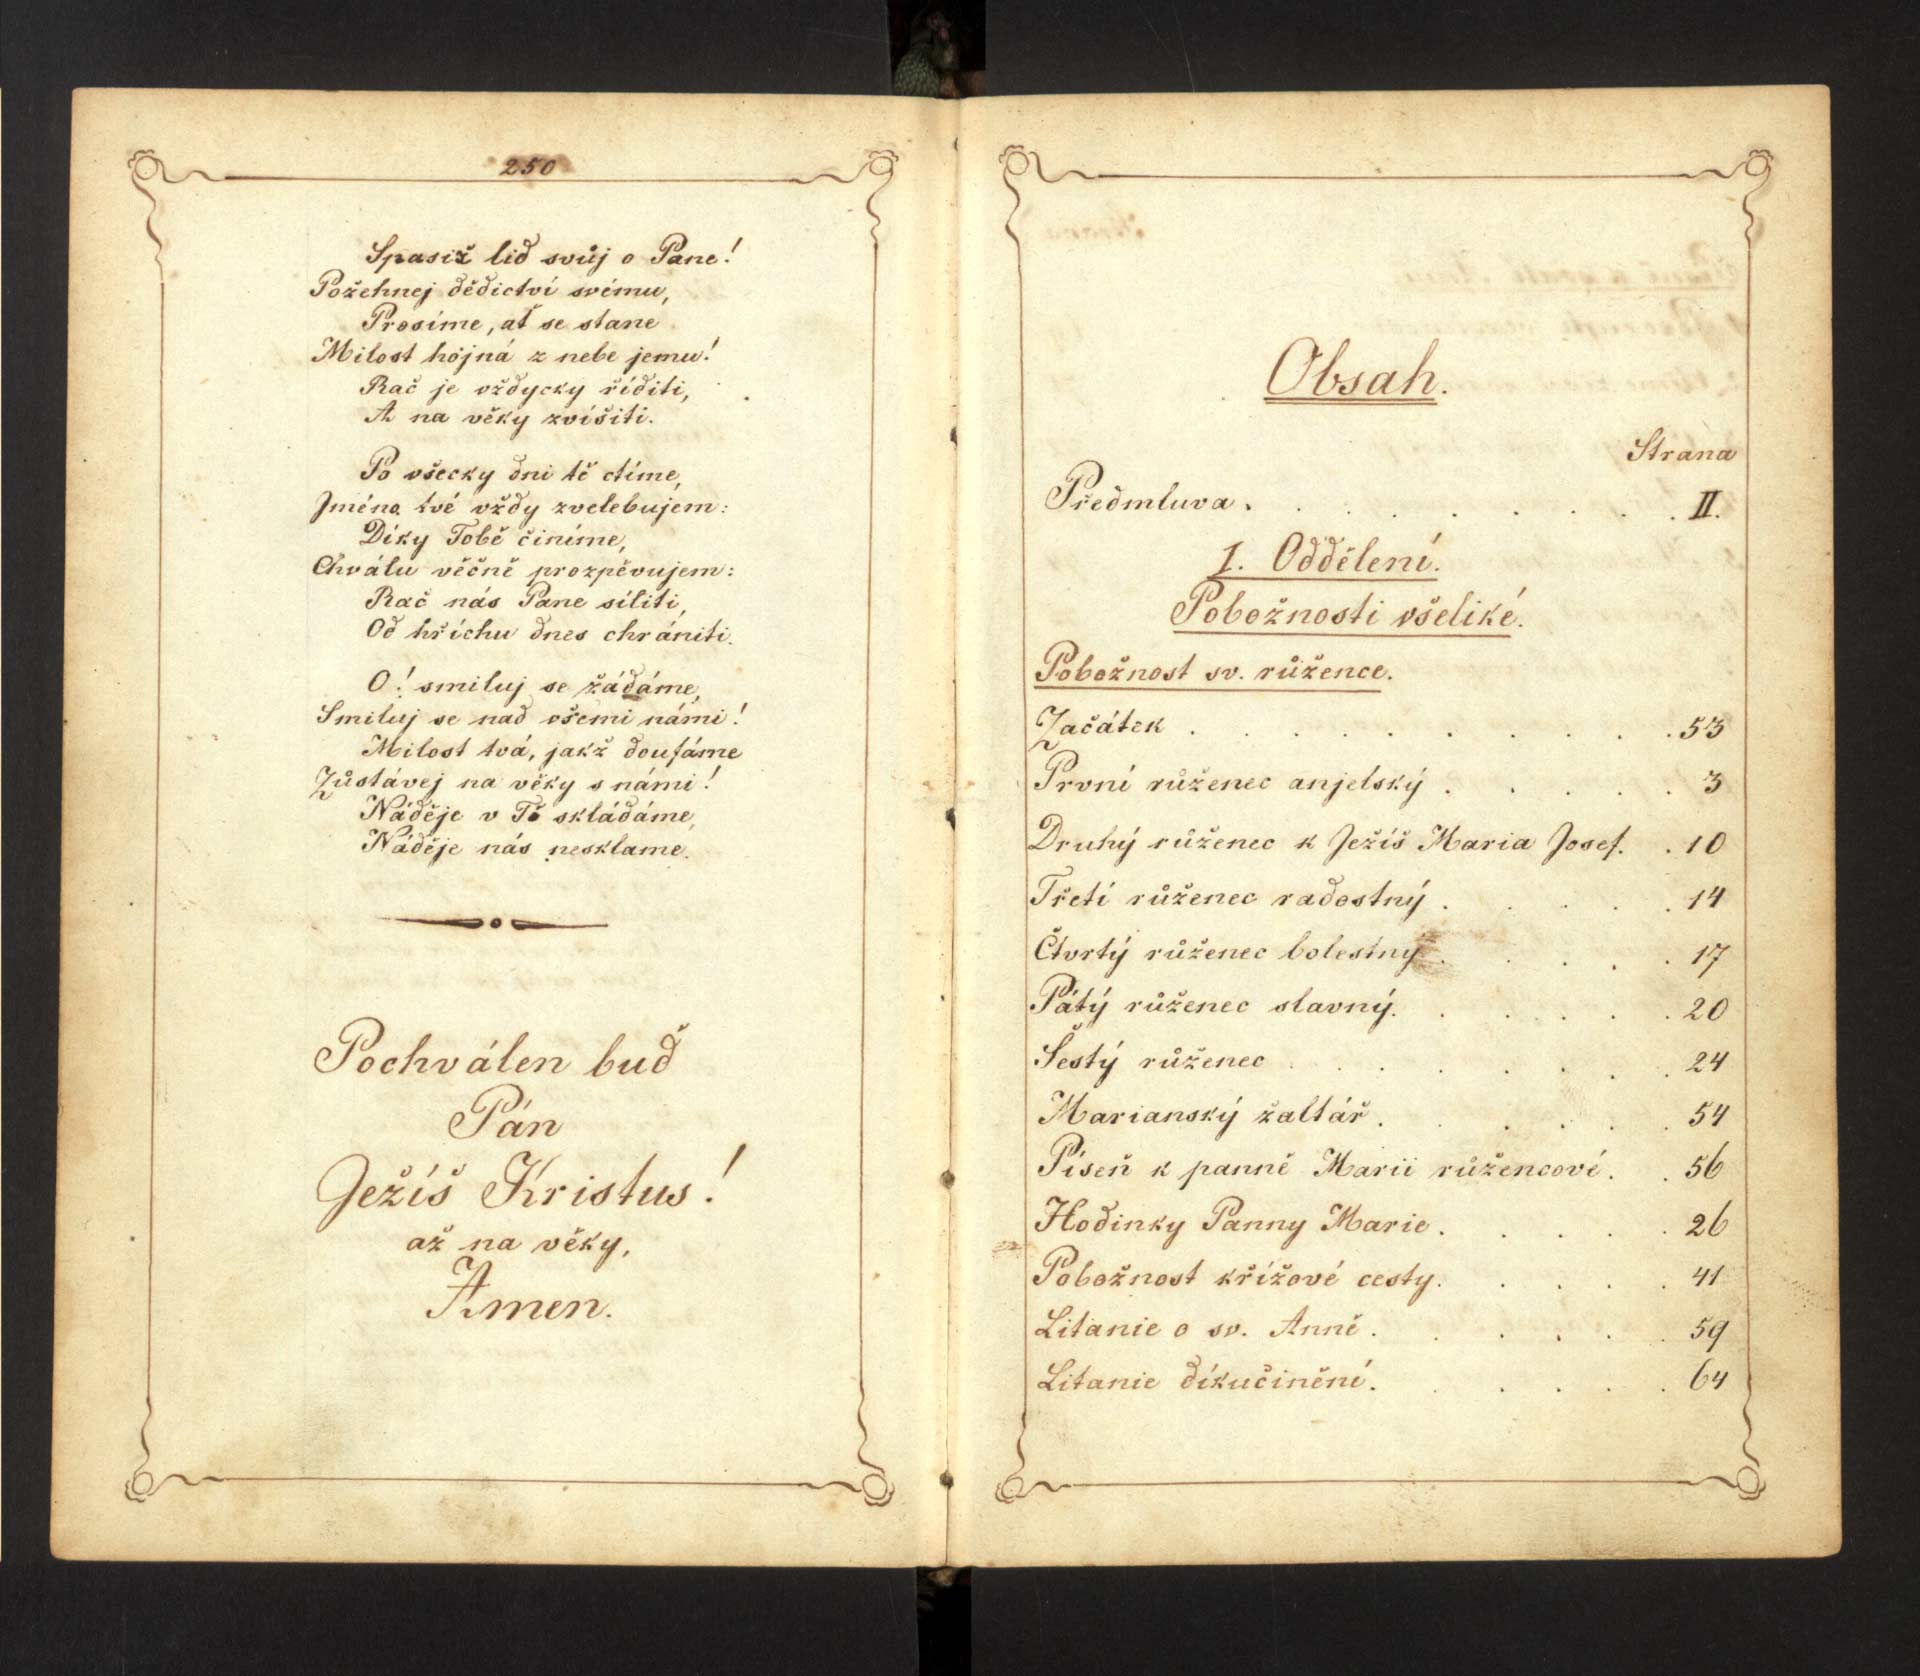 250
Spasiž lid svůj o Pane!
Požehnej dědictví svému,
Prosíme, ať se stane
Milost hojná z nebe jemu!
Rač je vždycky říditi,
A na věky zvíšiti.
Po všecky dni tě ctíme,
Jméno tvé vždy zvelebujem:
Díky Tobě činíme,
Chválu věčně prozpěvujem:
Rač nás Pane síliti,
Od hříchu dnes chrániti.
O! smiluj se žádáme,
Smiluj se nad všemi námi!
Milost tvá, jakž doufáme
Zůstávej na věky s námi!
Náděje v Tě skládáme,
Náděje nás nesklame.
Pochválen buď
Pán
Ježíš Kristus!
až na věky,
Amen.
Obsah.
Strana
Předmluva . . . . . . . . II.
I. Oddělení.
Pobožnosti všeliké.
Pobožnost sv. růžence.
Začátek . . . . . . . . . . 53
První růženec anjelský . . . . . 3
Druhý růženec k Ježíš Maria Josef. . 10
Třetí růženec radostný . . . . . 14
Čtvrtý růženec bolestný . . . . . 17
Pátý růženec slavný. . . . . . 20
Šestý růženec . . . . . . . . 24
Marianský žaltář . . . . . . 54
Píseň k panně Marii růžencové . . 56
Hodinky Panny Marie . . . . . 26
Pobožnost křížové cesty. . . . . 41
Litanie o sv. Anně . . . . . . 59
Litanie díkučinění . . . . . . 64